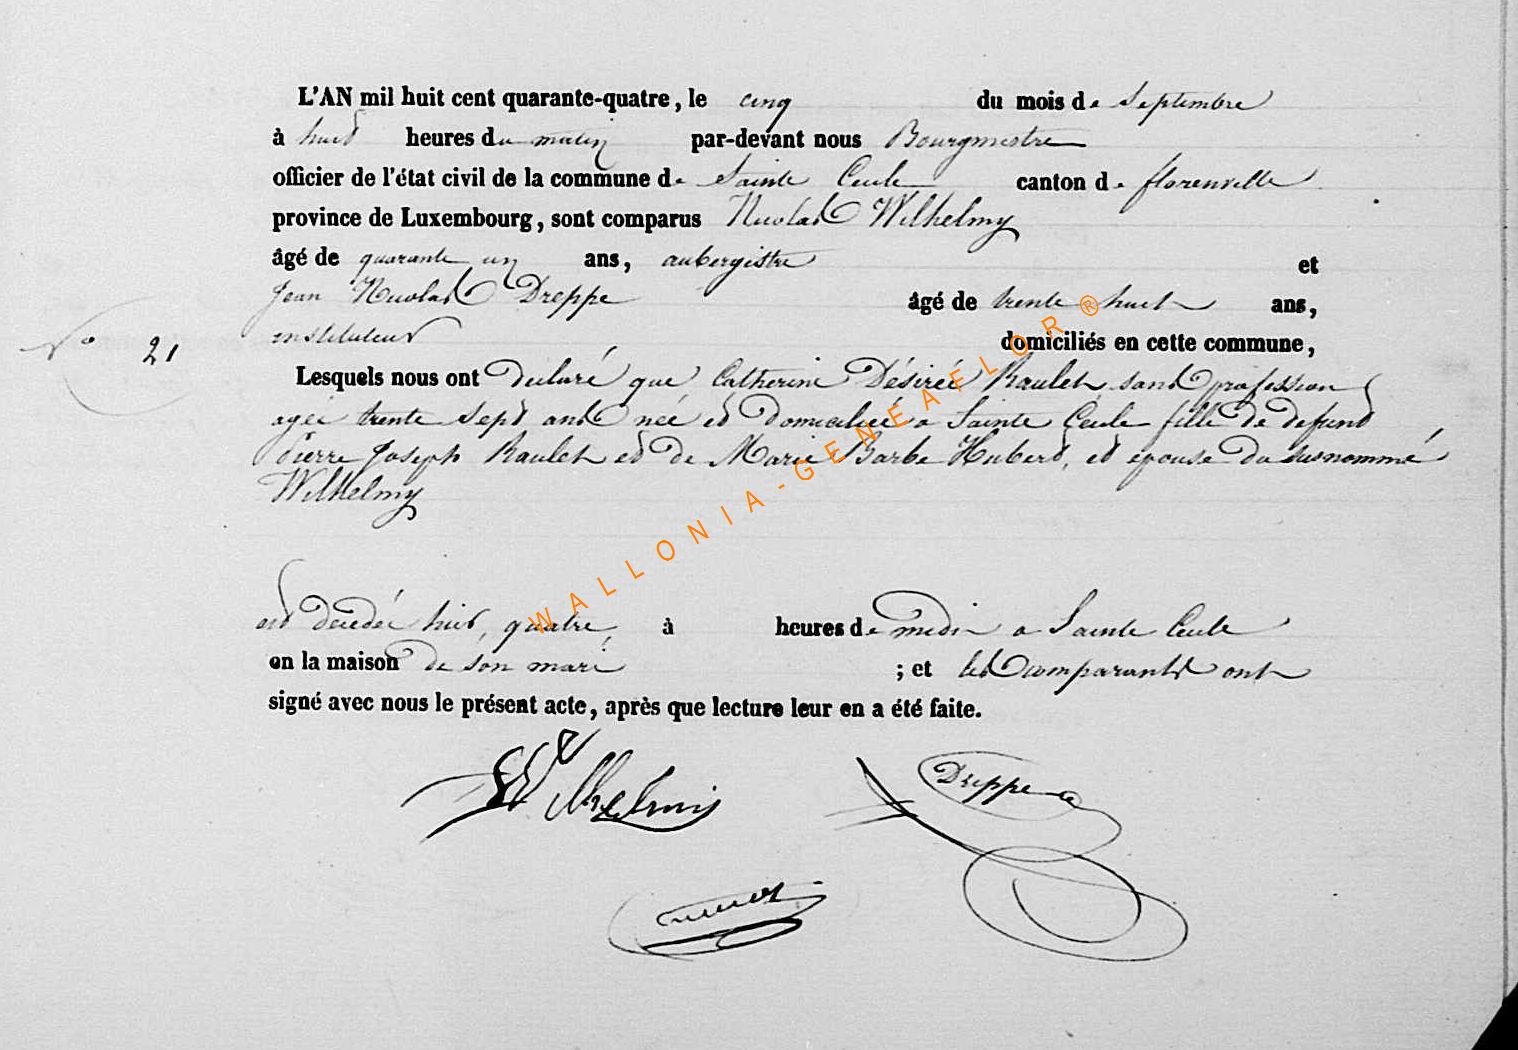 L'AN mil huit cent quarante-quatre, le cinq du mois de Septembre
à huit heures du matin par-devant nous Bourgmestre
officier de l'état civil de la commune de Sainte Cecile canton de florenville
province de Luxembourg, sont comparus Nicolas Wilhelmy
âgé de quarante un ans, aubergiste et
Jean Nicolas Dreppe âgé de trente huit ans,
instituteur domiciliés en cette commune,
N° 21
Lesquels nous ont declaré que Catherine Désireé Raulet sans profession
ageé trente sept ans neé et domicilieé a Sainte Cecile fille de defunt
Pierre Joseph Raulet et de Marie Barbe Hubert, et épouse du susnommé
Wilhelmy
est decedeé hier, quatre, à heures de midi a Sainte Cecile
en la maison de son mari ; et les Comparants ont
signé avec nous le présent acte, après que lecture leur en a été faite.
Wilhelmi Dreppe
WALLONIA-GENEAFLOR®